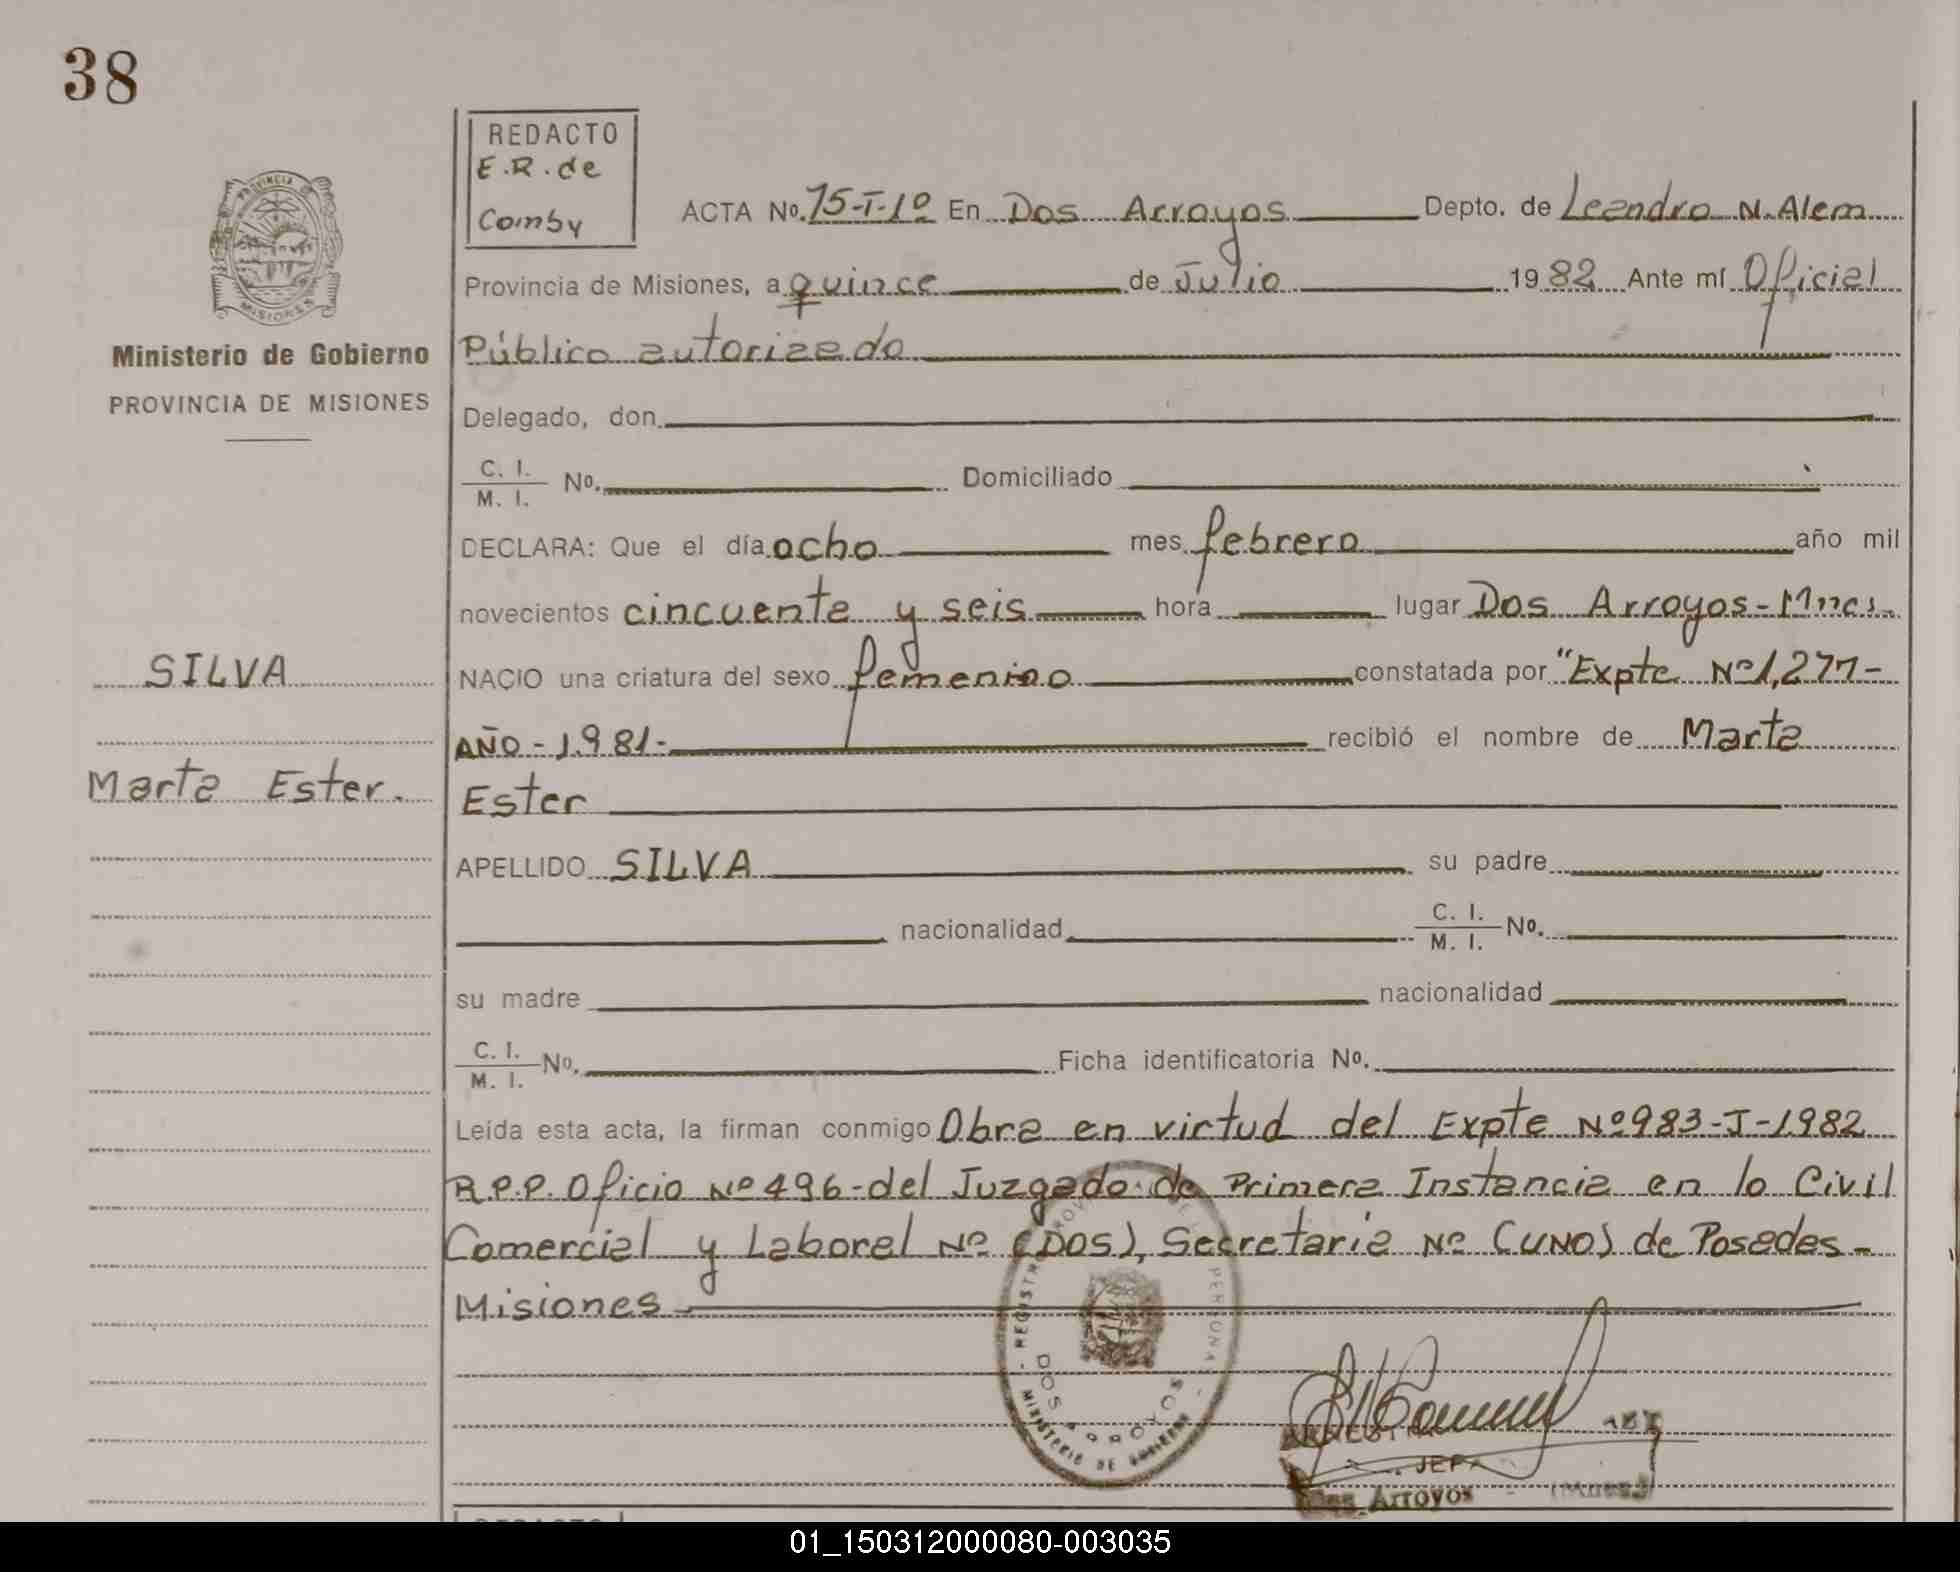 38
REDACTO
E.R. de
Comby
ACTA No. 75-T-1º En Dos Arroyos Depto. de Leandro N. Alem
Provincia de Misiones, a quince de Julio 1982 Ante mí Oficial
Público autorizado
Delegado, don
C. I.
M. I. No. Domiciliado
DECLARA: Que el día ocho mes febrero año mil
novecientos cincuenta y seis hora lugar Dos Arroyos - Mnes.
NACIO una criatura del sexo femenino constatada por "Expte Nº 1,277-
AÑO - 1.981- recibió el nombre de Marta
Ester
APELLIDO SILVA su padre
nacionalidad C. I.
M. I. No.
su madre nacionalidad
C. I.
M. I. No. Ficha identificatoria No.
Leída esta acta, la firman conmigo Obra en virtud del Expte Nº 983-J-1982
R.P.P. Oficio Nº 496-del Juzgado de Primera Instancia en lo Civil
Comercial y Laboral Nº (DOS), Secretaria Nº (UNO) de Posadas-
Misiones
PROVINCIA
MISIONES
Ministerio de Gobierno
PROVINCIA DE MISIONES
SILVA
Marta Ester.
DOS ARROYOS
MINISTERIO DE GOBIERNO
JEFA
Dos Arroyos (Mnes)
01_150312000080-003035